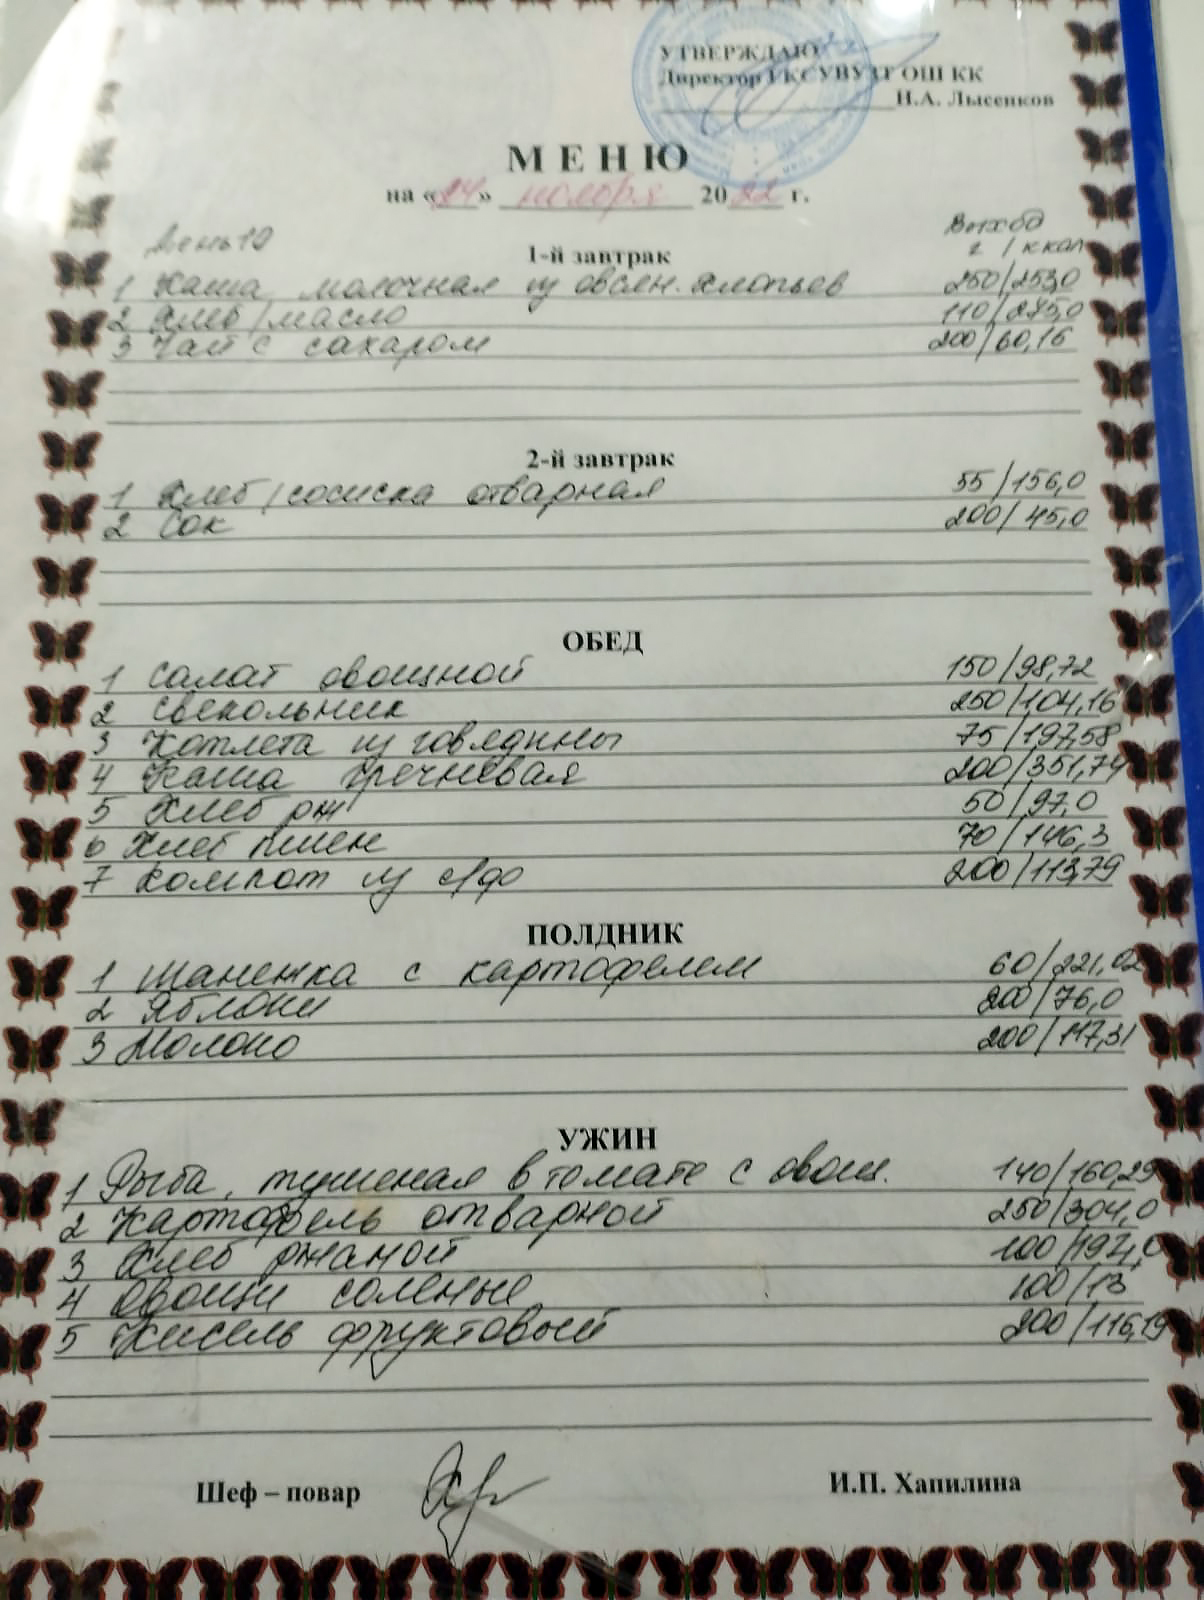 УТВЕРЖДАЮ
Директор ГКСУВУЗТ ОШ КК
Н.А. Лысенков
МЕНЮ
на «24» ноября 2022 г.
День 10
Выход
г / ккал
1-й завтрак
1 Каша молочная из овсян. хлопьев 250/253,0
2 Хлеб/масло 110/275,0
3 Чай с сахаром 200/60,16
2-й завтрак
1 Хлеб/сосиска отварная 55/156,0
2 Сок 200/45,0
ОБЕД
1 Салат овощной 150/98,72
2 Свекольник 250/104,16
3 Котлета из говядины 75/197,58
4 Каша гречневая 200/351,74
5 Хлеб рж 50/97,0
6 Хлеб пшен 70/146,3
7 Компот из с/фо 200/113,79
ПОЛДНИК
1 Шанежка с картофелем 60/221,02
2 Яблоки 200/76,0
3 Молоко 200/117,31
УЖИН
1 Рыба, тушеная в томате с овощ. 140/160,29
2 Картофель отварной 250/304,0
3 Хлеб ржаной 100/194,0
4 Овощи соленые 100/13
5 Кисель фруктовый 200/116,19
Шеф – повар
И.П. Хапилина